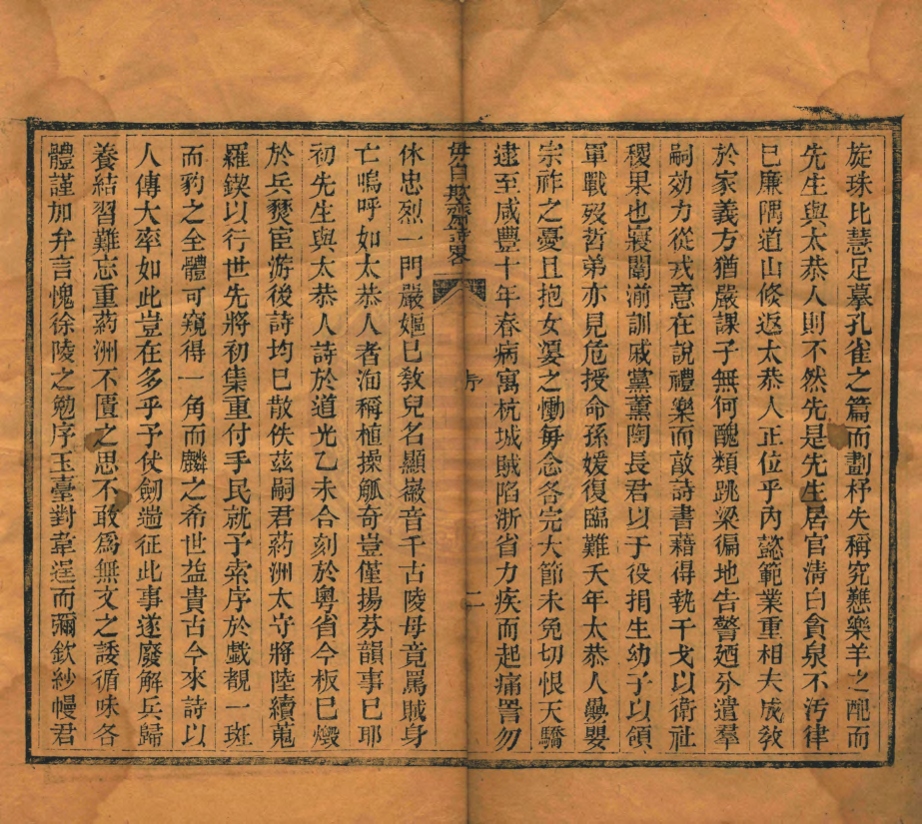 旋珠比慧足摹孔雀之篇而劃杼失稱究慙樂羊之配而
先生與太恭人則不然先是先生居官清白貪泉不汚律
已廉隅道山倏返太恭人正位乎內懿範業重相夫成敎
於家義方猶嚴課子無何醜類跳梁徧地告警廼分遣羣
嗣効力從戎意在說禮樂而敵詩書藉得執干戈以衛社
稷果也寢闈湔訓戚黨薰陶長君以于役捐生幼子以領
軍戰歿哲弟亦見危授命孫媛復臨難夭年太恭人爨嬰
宗祚之憂且抱女嬃之慟每念各完大節未免切恨天驕
逮至咸豐十年春病寓杭城賊陷浙省力疾而起痛詈勿
毋自欺齋詩畧
序
二
休忠烈一門嚴嫗巳敎兒名顯徽音千古陵母竟罵賊身
亡嗚呼如太恭人者洵稱植操觚奇豈僅揚芬韻事巳耶
初先生與太恭人詩於道光乙未合刻於粵省今板巳燬
於兵燹宦游後詩均巳散佚茲嗣君葯洲太守將陸續蒐
羅鍥以行世先將初集重付手民就予索序於戲覩一斑
而豹之全體可窺得一角而麟之希世益貴古今來詩以
人傳大率如此豈在多乎予仗劒遄征此事遂廢解兵歸
養結習難忘重葯洲不匱之思不敢爲無文之諉循味各
體謹加弁言愧徐陵之勉序玉臺對韋逞而彌欽紗幔君